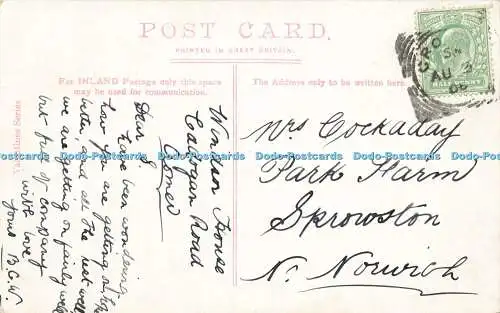 POST CARD.
PRINTED IN GREAT BRITAIN.
For INLAND Postage only this space
may be used for communication.
The Address only to be written here.
HALFPENNY
CRO
AU 3
Series
Windsor House
Cadogan Road
Cromer
Dear S.
have been wondering
how you are getting on, hope
better, and all the rest well
we are getting on fairly well
but full of company
with love
Yours B.C.W.
Mrs Cockaday
Park Farm
Sprowston
Nr. Norwich
Dodo-Postcards Dodo-Postcards Dodo-Postcards Dodo-Postcards Dodo-Postcards Dodo-Postcards